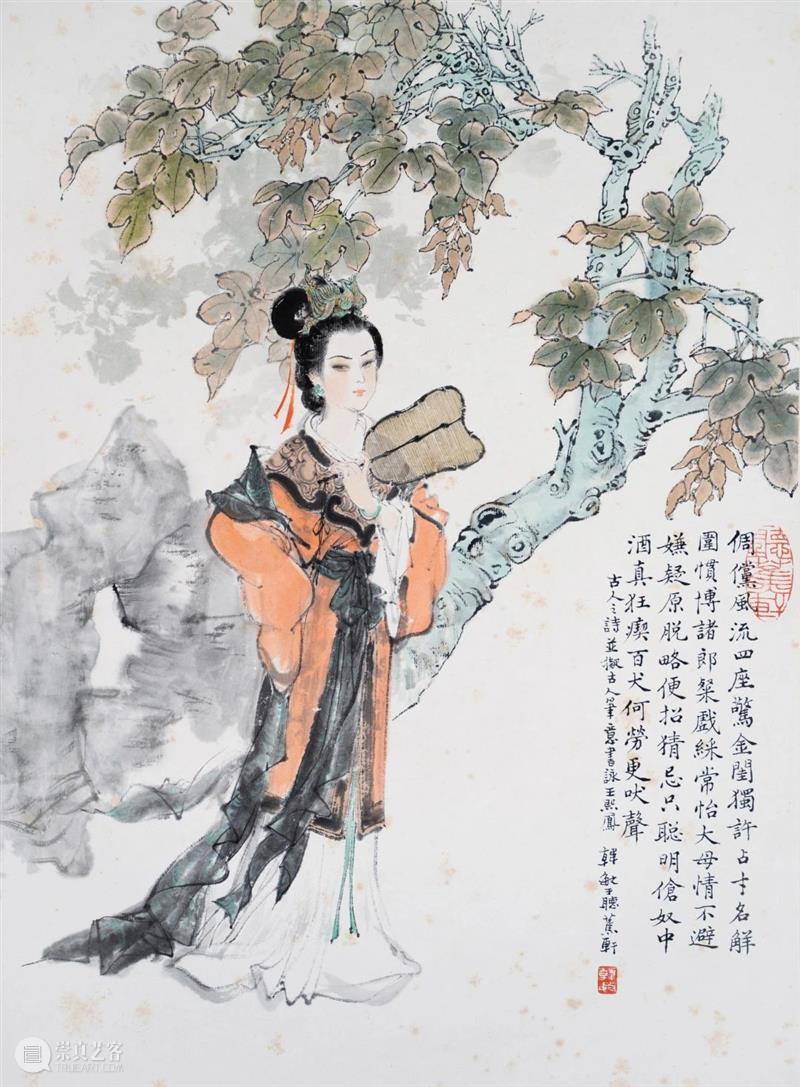 倜儻風流四座驚金閨獨許占才名解
圍慣博諸郎粲戲綵常怡大母情不避
嫌疑原脫略便招猜忌只聰明傖奴中
酒真狂瘈百犬何勞更吠聲
古人之詩並擬古人筆意書詠王熙鳳 韓敏于聽蕉軒
崇真艺客